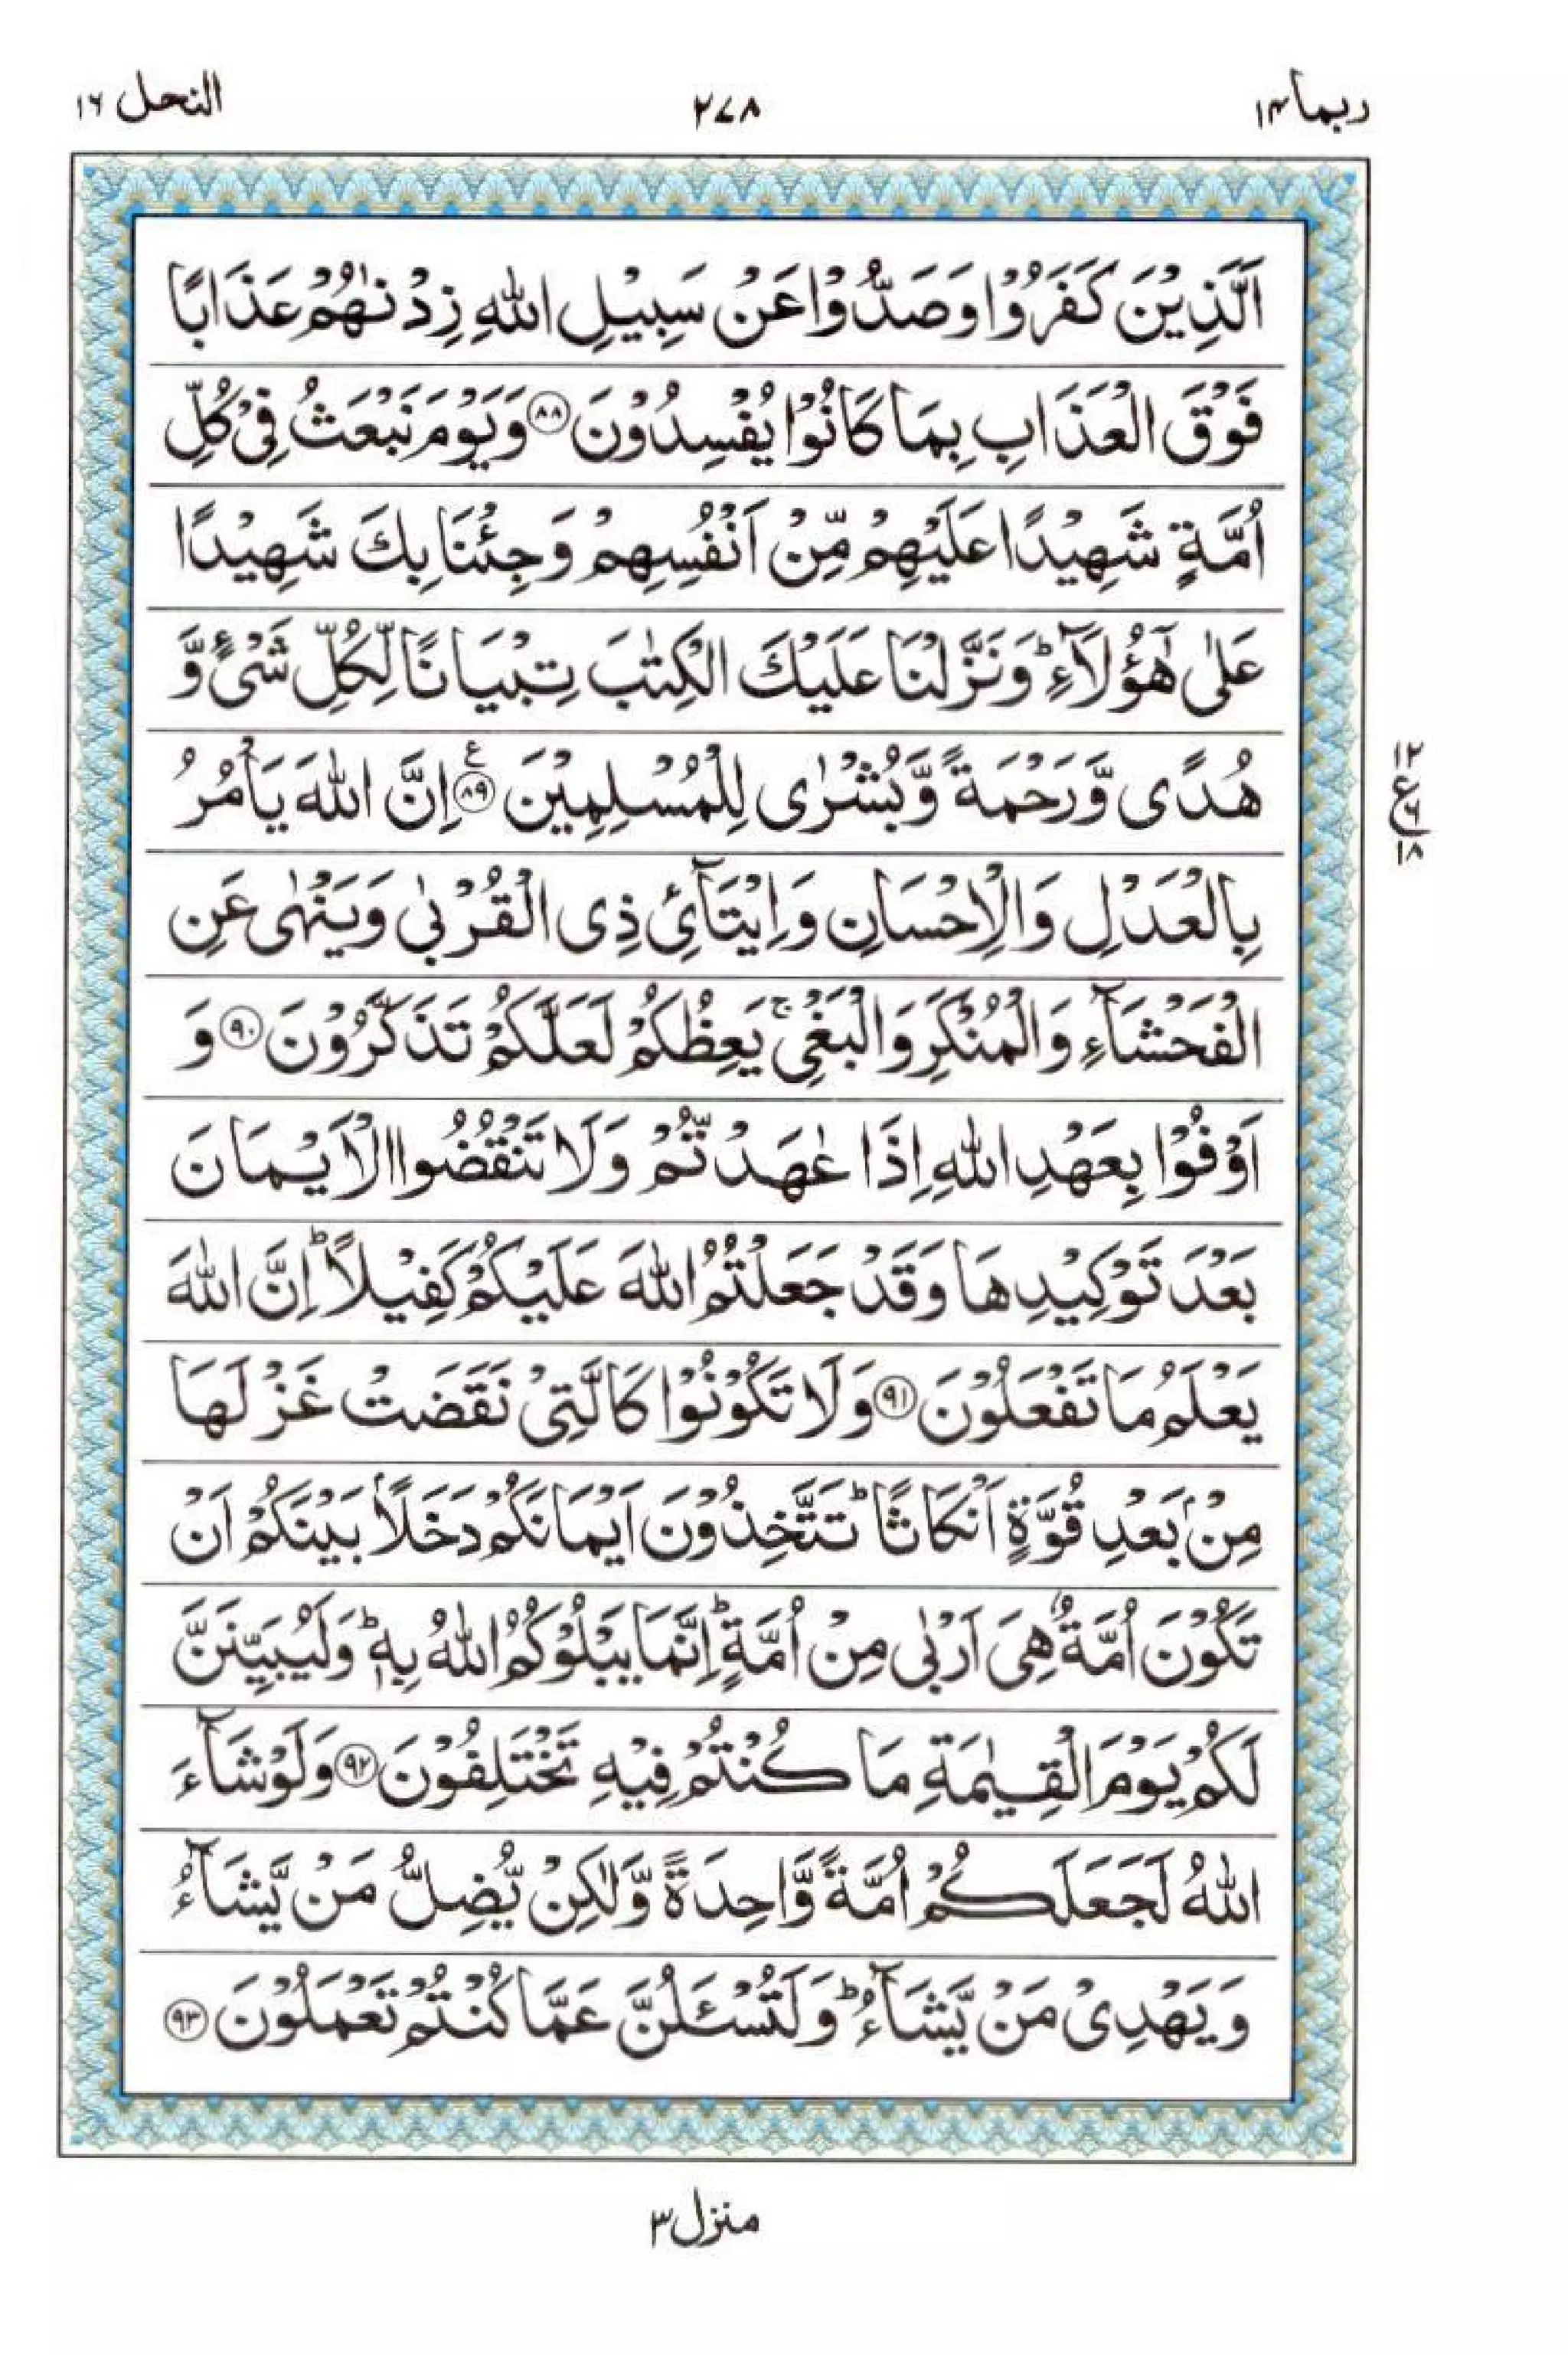 ربما ۱۴ ۲۷۸ النحل ۱۶
اَلَّذِيْنَ كَفَرُوْا وَصَدُّوْا عَنْ سَبِيْلِ اللّٰهِ زِدْنٰهُمْ عَذَابًا
فَوْقَ الْعَذَابِ بِمَا كَانُوْا يُفْسِدُوْنَ ۸۸ وَيَوْمَ نَبْعَثُ فِيْ كُلِّ
اُمَّةٍ شَهِيْدًا عَلَيْهِمْ مِّنْ اَنْفُسِهِمْ وَجِئْنَا بِكَ شَهِيْدًا
عَلٰى هٰٓؤُلَآءِ ؕ وَنَزَّلْنَا عَلَيْكَ الْكِتٰبَ تِبْيَانًا لِّكُلِّ شَيْءٍ وَّ
هُدًى وَّرَحْمَةً وَّبُشْرٰى لِلْمُسْلِمِيْنَ ۸۹ ع اِنَّ اللّٰهَ يَاْمُرُ
بِالْعَدْلِ وَالْاِحْسَانِ وَاِيْتَآئِ ذِي الْقُرْبٰى وَيَنْهٰى عَنِ
الْفَحْشَآءِ وَالْمُنْكَرِ وَالْبَغْيِ ۚ يَعِظُكُمْ لَعَلَّكُمْ تَذَكَّرُوْنَ ۹۰ وَ
اَوْفُوْا بِعَهْدِ اللّٰهِ اِذَا عٰهَدْتُّمْ وَلَا تَنْقُضُوا الْاَيْمَانَ
بَعْدَ تَوْكِيْدِهَا وَقَدْ جَعَلْتُمُ اللّٰهَ عَلَيْكُمْ كَفِيْلًا ؕ اِنَّ اللّٰهَ
يَعْلَمُ مَا تَفْعَلُوْنَ ۹۱ وَلَا تَكُوْنُوْا كَالَّتِيْ نَقَضَتْ غَزْلَهَا
مِنْۢ بَعْدِ قُوَّةٍ اَنْكَاثًا ؕ تَتَّخِذُوْنَ اَيْمَانَكُمْ دَخَلًۢا بَيْنَكُمْ اَنْ
تَكُوْنَ اُمَّةٌ هِيَ اَرْبٰى مِنْ اُمَّةٍ ؕ اِنَّمَا يَبْلُوْكُمُ اللّٰهُ بِهٖ ؕ وَلَيُبَيِّنَنَّ
لَكُمْ يَوْمَ الْقِيٰمَةِ مَا كُنْتُمْ فِيْهِ تَخْتَلِفُوْنَ ۹۲ وَلَوْ شَآءَ
اللّٰهُ لَجَعَلَكُمْ اُمَّةً وَّاحِدَةً وَّلٰكِنْ يُّضِلُّ مَنْ يَّشَآءُ
وَيَهْدِيْ مَنْ يَّشَآءُ ؕ وَلَتُسْـَٔلُنَّ عَمَّا كُنْتُمْ تَعْمَلُوْنَ ۹۳
۱۲
ع ۶
۱۸
منزل ۳